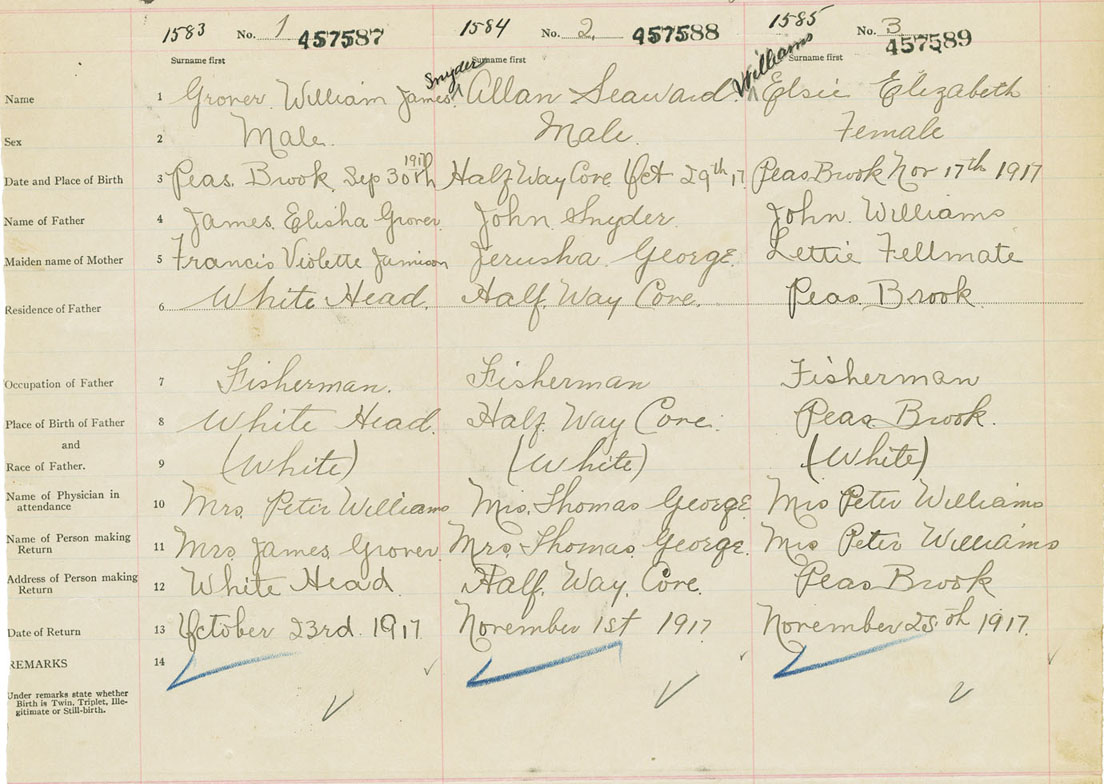 1583 No. 1 457587 1584 No. 2 457588 1585 No. 3 457589
Surname first Surname first Surname first
Snyder Williams
Name 1 Grover William James. Allan Seaward. Elsie Elizabeth
Sex 2 Male. Male. Female
1917
Date and Place of Birth 3 Peas. Brook. Sep 30th Half Way Cove Oct 29th 17 Peas Brook Nov 17th 1917
Name of Father 4 James Elisha Grover John Snyder. John Williams
Maiden name of Mother 5 Francis Violette Jamieson Jerusha George. Lettie Fellmate
Residence of Father 6 White Head. Half Way Cove. Peas. Brook.
Occupation of Father 7 Fisherman. Fisherman Fisherman
Place of Birth of Father 8 White Head. Half Way Cove. Peas Brook.
and
Race of Father. 9 (White) (White) (White)
Name of Physician in
attendance 10 Mrs. Peter Williams Mrs. Thomas George Mrs Peter Williams
Name of Person making
Return 11 Mrs James Grover Mrs. Thomas. George. Mrs Peter Williams
Address of Person making
Return 12 White Head. Half. Way. Cove. Peas Brook
Date of Return 13 October 23rd. 1917. November 1st 1917. November 25th 1917.
REMARKS 14
Under remarks state whether
Birth is Twin, Triplet, Ille-
gitimate or Still-birth.